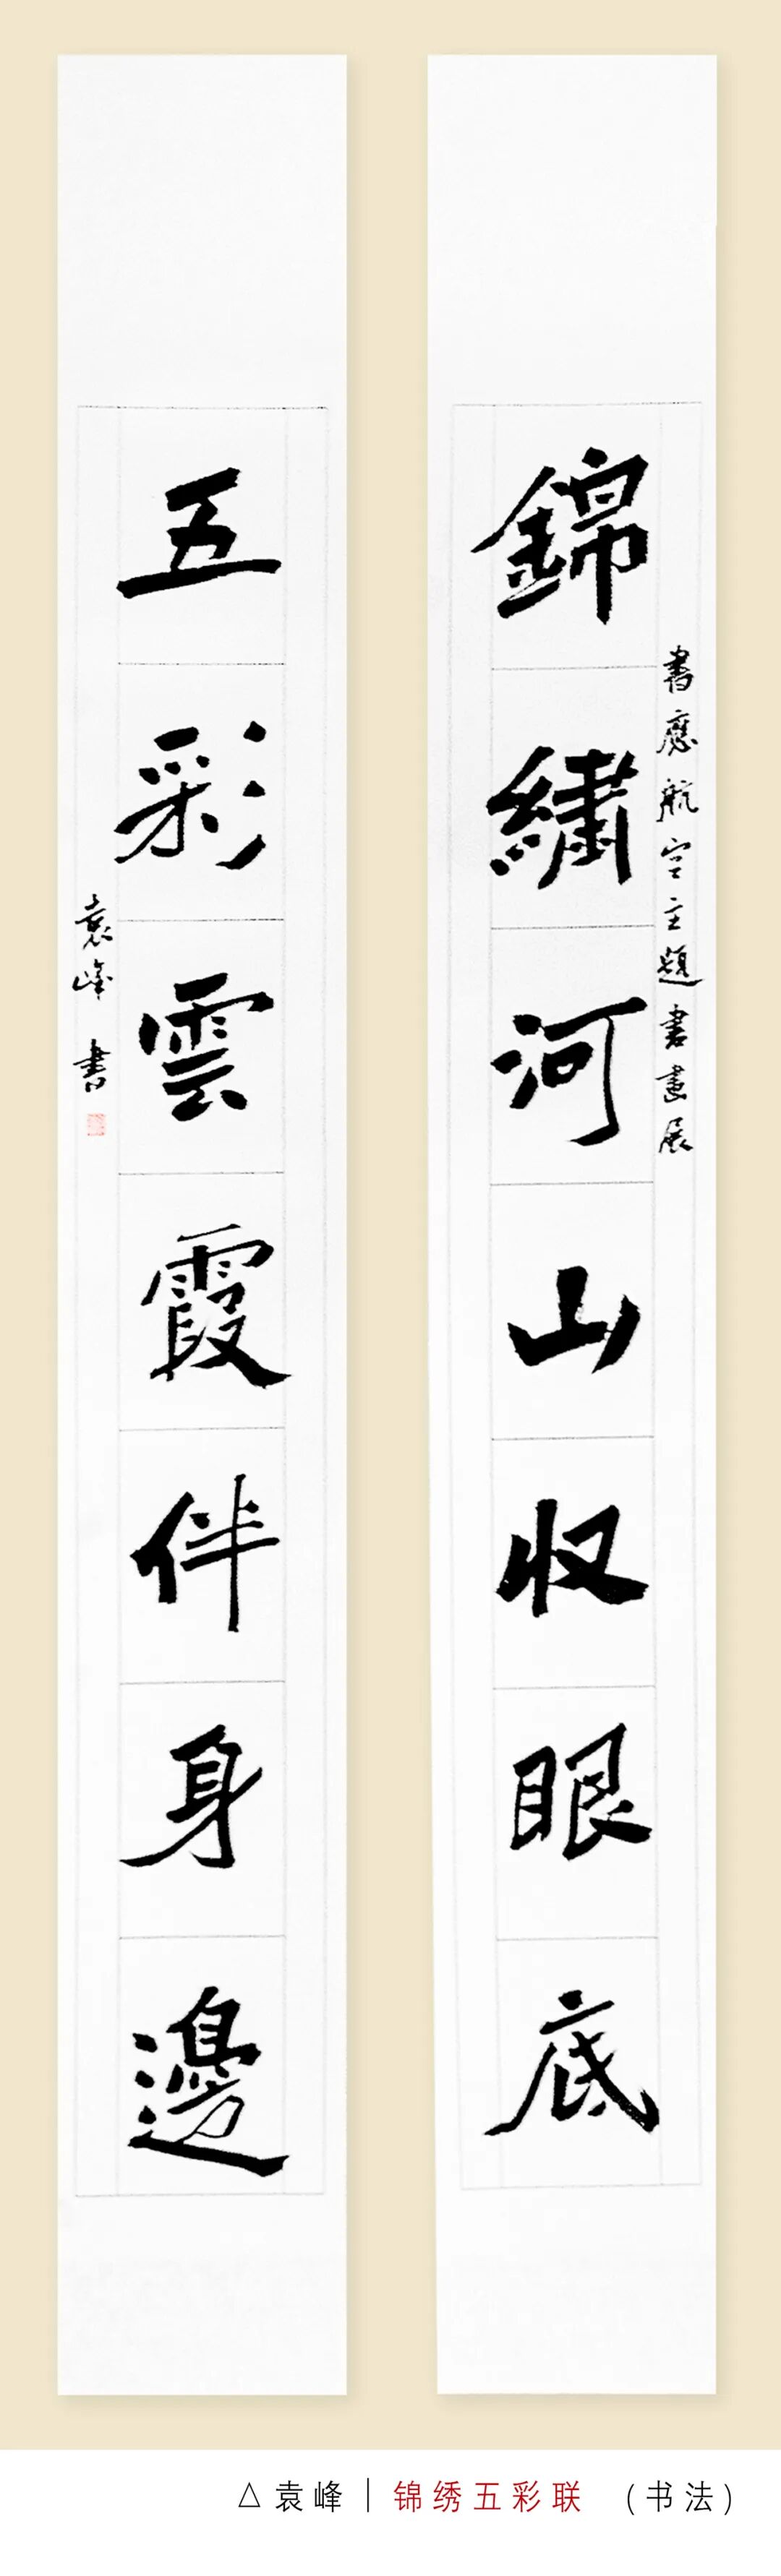 錦繡河山収眼底
書應航空主題書畫展
五彩雲霞伴身邊
袁峰 書
△袁峰｜锦绣五彩联 (书法)